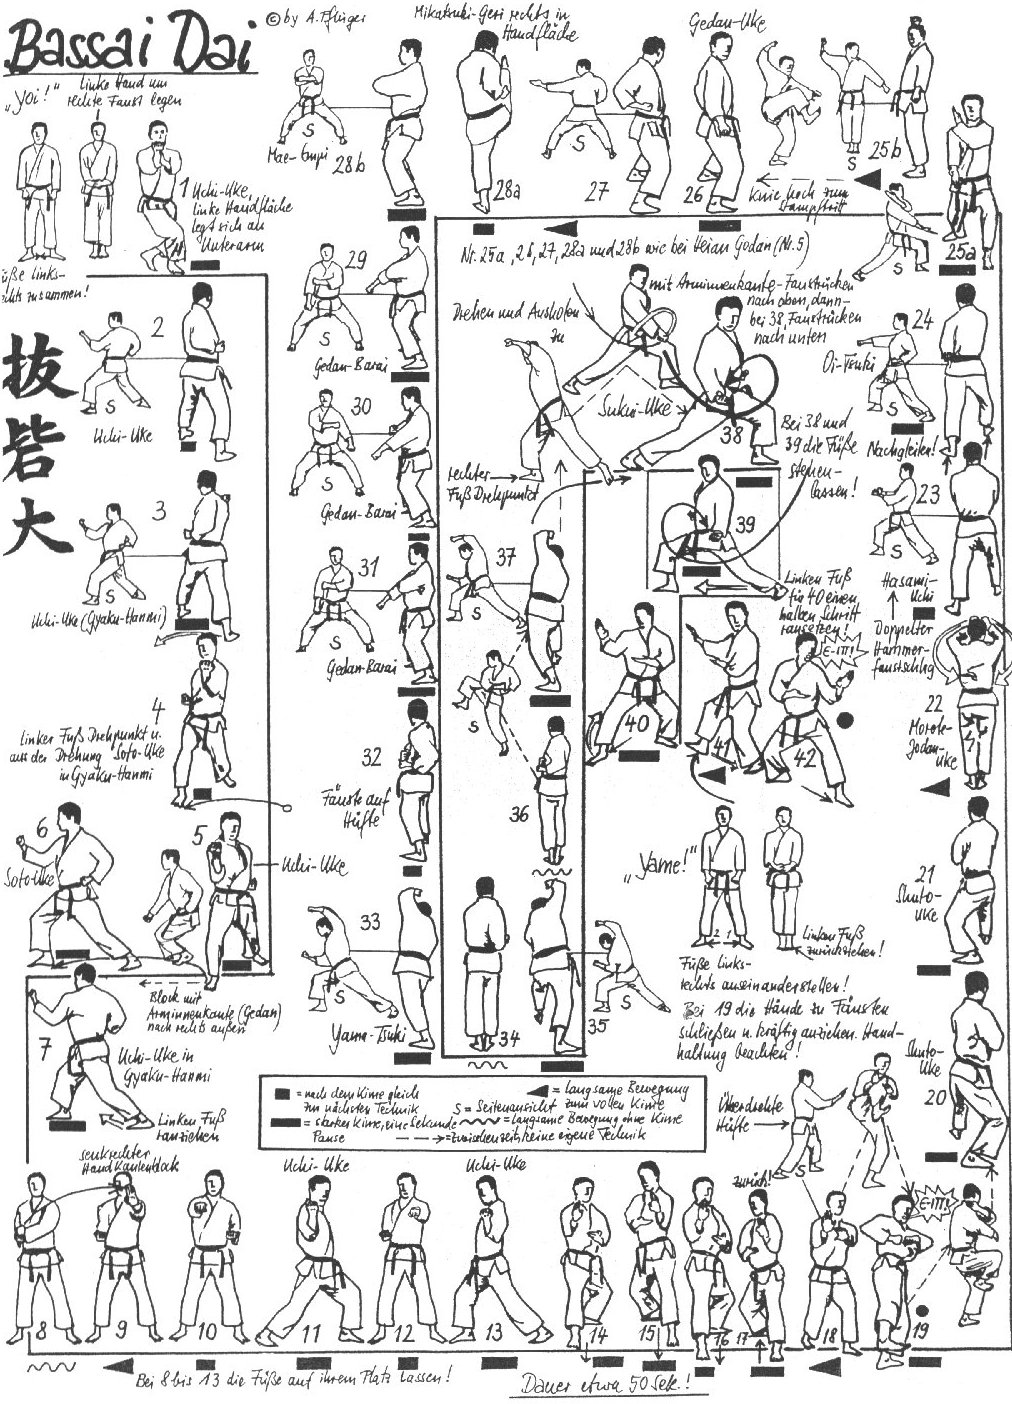 Bassai Dai
© by A. Pflüger
„Yoi!"
linke Hand um
rechte Faust legen
1 Uchi-Uke,
linke Handfläche
legt sich an
Unterarm
Füße links-
rechts zusammen!
抜
砦
大
2
S
Uchi-Uke
3
S
Uchi-Uke (Gyaku-Hanmi)
4
Linker Fuß Drehpunkt u.
aus der Drehung Soto-Uke
in Gyaku-Hanmi
5
Uchi-Uke
6
Soto-Uke
Block mit
Arminnenkante (Gedan)
nach rechts außen
7
Uchi-Uke in
Gyaku-Hanmi
Linken Fuß
ranziehen
senkrechter
Handkantenblock
8
9
10
Uchi-Uke
11
12
Uchi-Uke
13
14
15
16
zurück!
17
18
19
E-ITT!
Bei 8 bis 13 die Füße auf ihrem Platz lassen!
Dauer etwa 50 Sek.!
Überdrehte
Hüfte
S
Shuto-
Uke
20
21
Shuto-
Uke
22
Morote-
Jodan-
Uke
23
S
Hasami-
Uchi
Doppelter
Hammer-
faustschlag
24
Oi-Tsuki
S
Nachgleiten!
25a
S
25b
S
Knie hoch zum
Stampftritt
Gedan-Uke
26
27
S
Mikatsuki-Geri rechts in
Handfläche
28a
Mae-Empi
28b
S
Nr. 25a, 26, 27, 28a und 28b wie bei Heian Godan (Nr. 5)
29
S
Gedan-Barai
30
S
Gedan-Barai
31
S
Gedan-Barai
32
Fäuste auf
Hüfte
33
S
Yama-Tsuki
34
35
S
36
37
S
S
rechter
Fuß Drehpunkt
Drehen und Ausholen
zu
mit Arminnenkante-Faustrücken
nach oben, dann
bei 38, Faustrücken
nach unten
Sukui-Uke
38
Bei 38 und
39 die Füße
stehen-
lassen!
39
Linken Fuß
für 40 einen
halben Schritt
ransetzen!
40
41
42
E-ITT!
„Yame!"
2 1
Linken Fuß
zurückziehen!
Füße links-
rechts auseinanderstellen!
Bei 19 die Hände zu Fäusten
schließen u. kräftig anziehen. Hand-
haltung beachten!
= nach dem Kime gleich
zur nächsten Technik
= starkes Kime, eine Sekunde
Pause
= langsame Bewegung
zum vollen Kime
S = Seitenansicht
= langsame Bewegung ohne Kime
= Zwischenzeit, keine eigene Technik